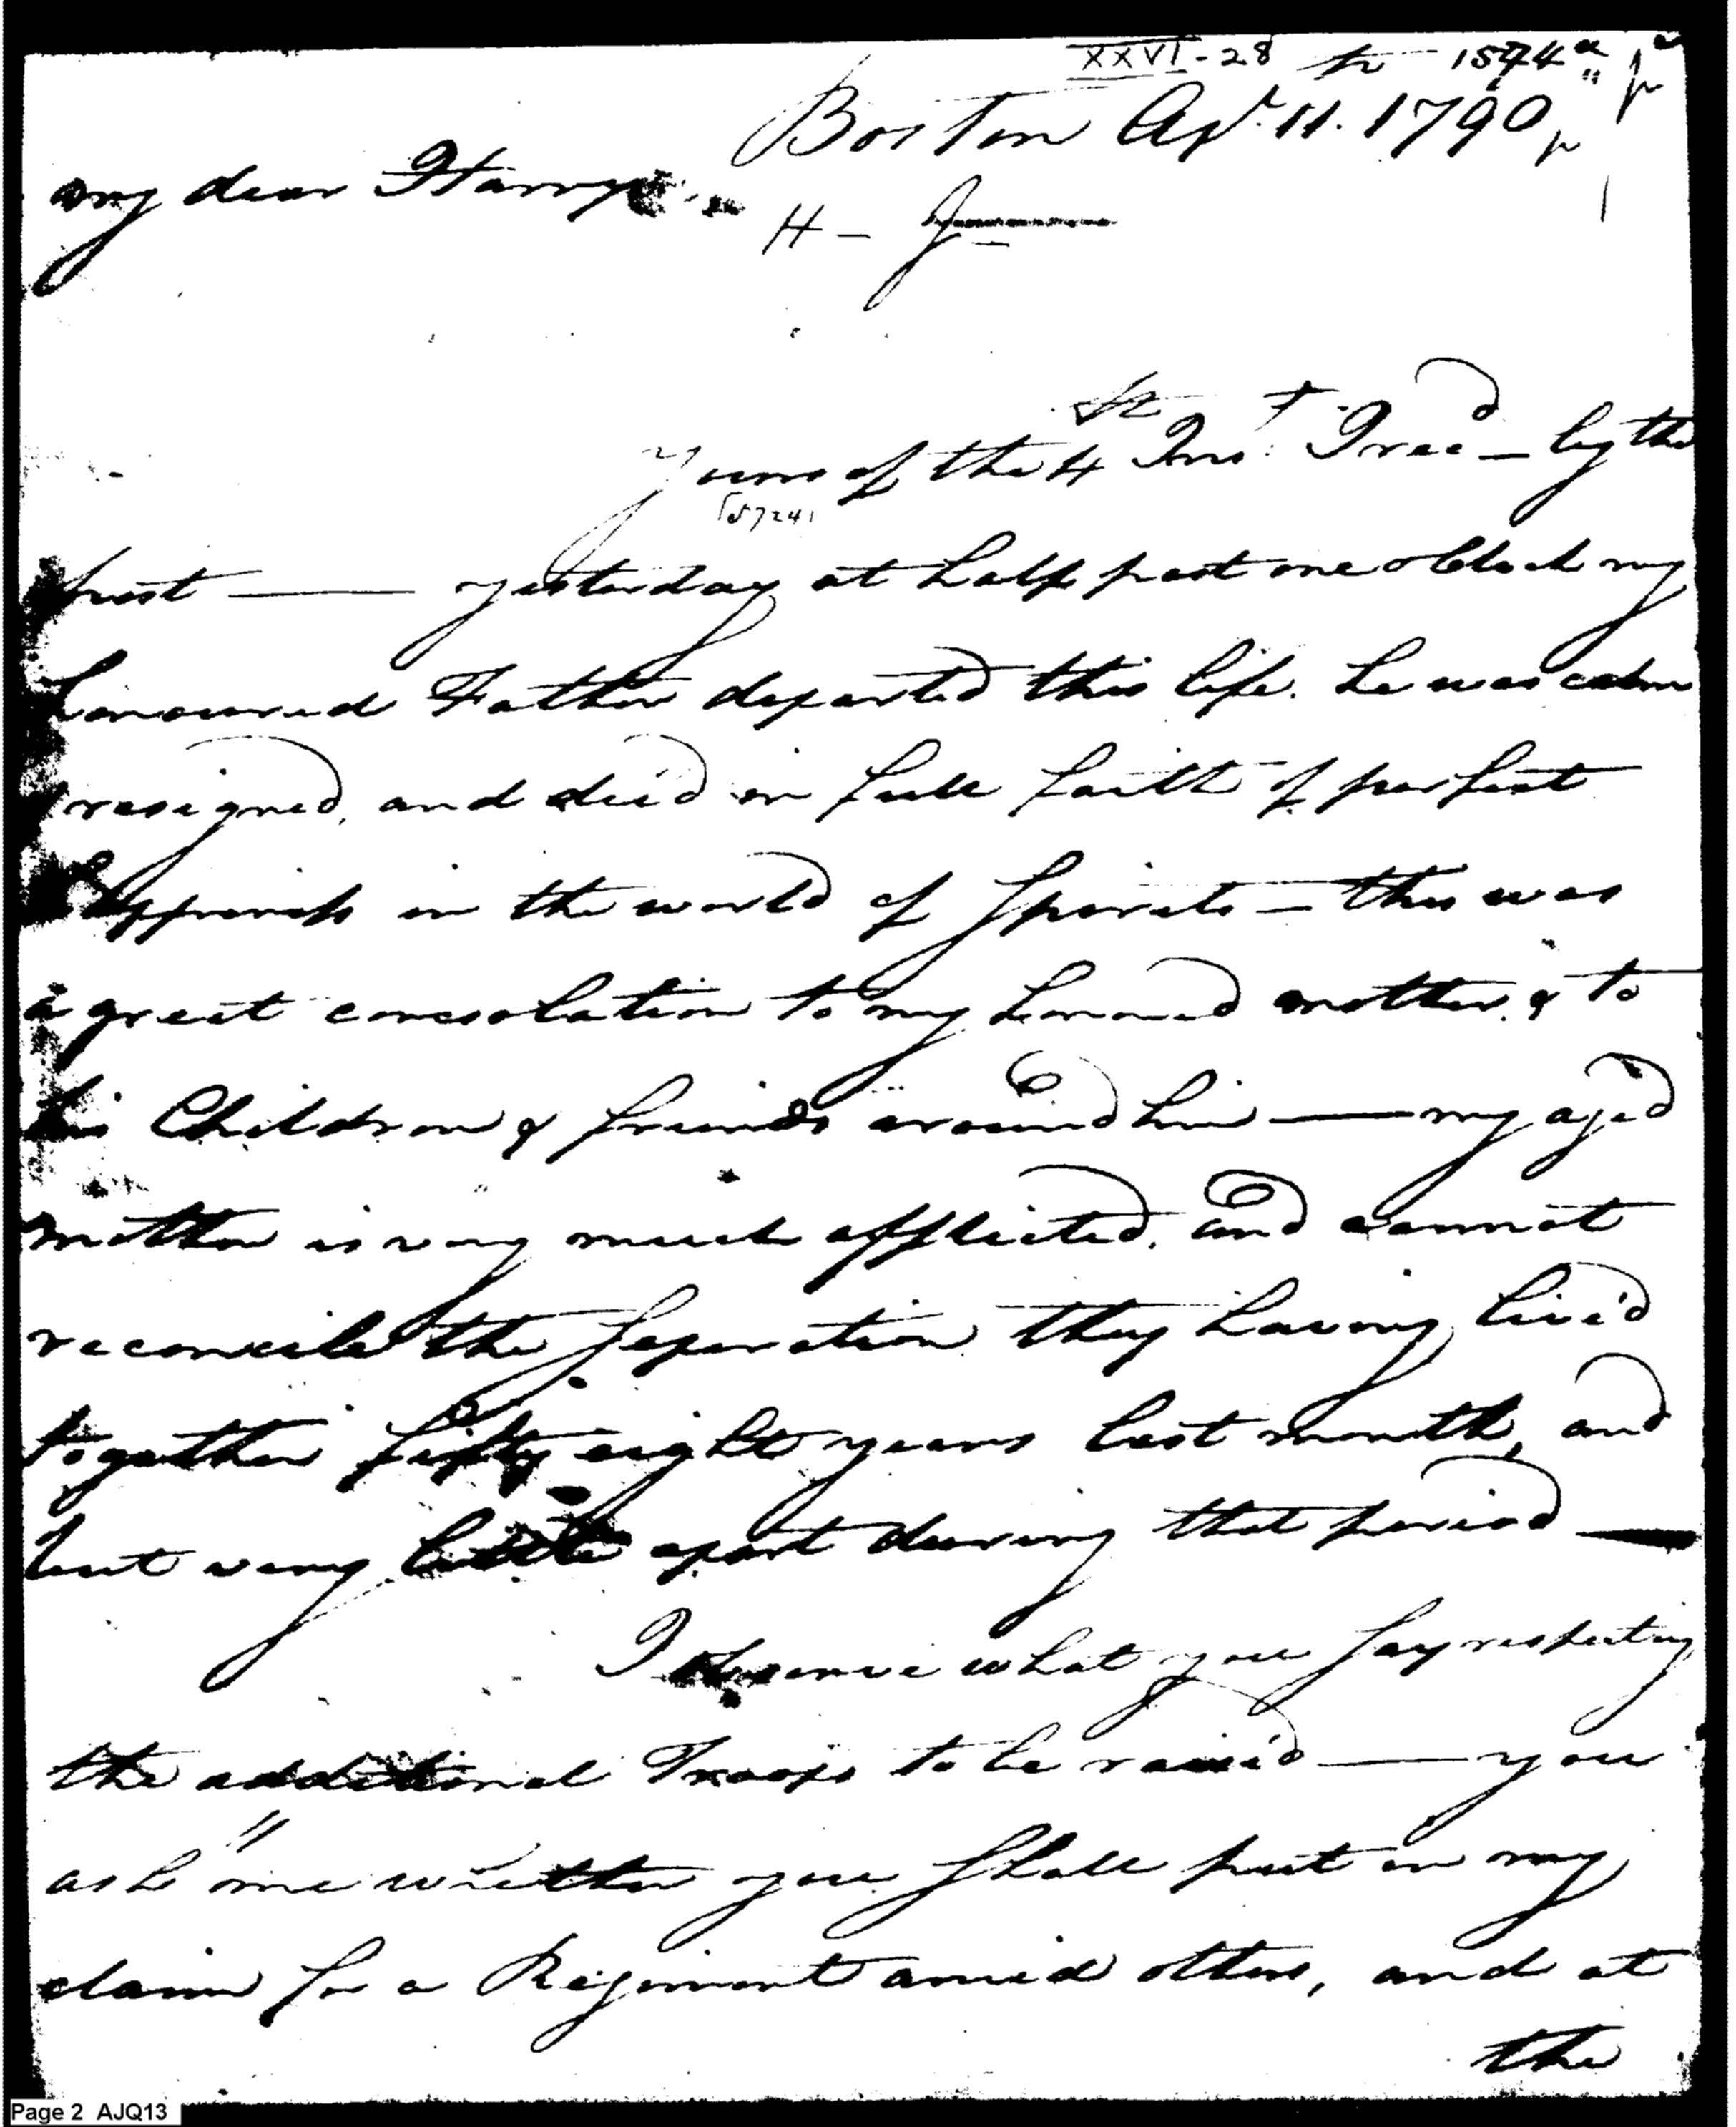 XXVI-28
Boston Apr. 11. 1790
my dear Harry
H - J
Yours of the 4th Inst. I rec'd - by the
[5724]
post — yesterday at half past one oClock my
honoured Father departed this life. he was calm
resigned, and died in full faith of perfect
Happiness in the world of Spirits - this was
a great consolation to my honored mother, & to
his Children & friends around him — my aged
mother is very much afflicted, and cannot
reconcile the Seperation they having liv'd
together fifty eight years last month, and
but very little apart during that period —
I observe what you Say respecting
the additional Troops to be rais'd — you
ask me whether you Shall put in my
claim for a Regiment amid others, and at
the
Page 2 AJQ13